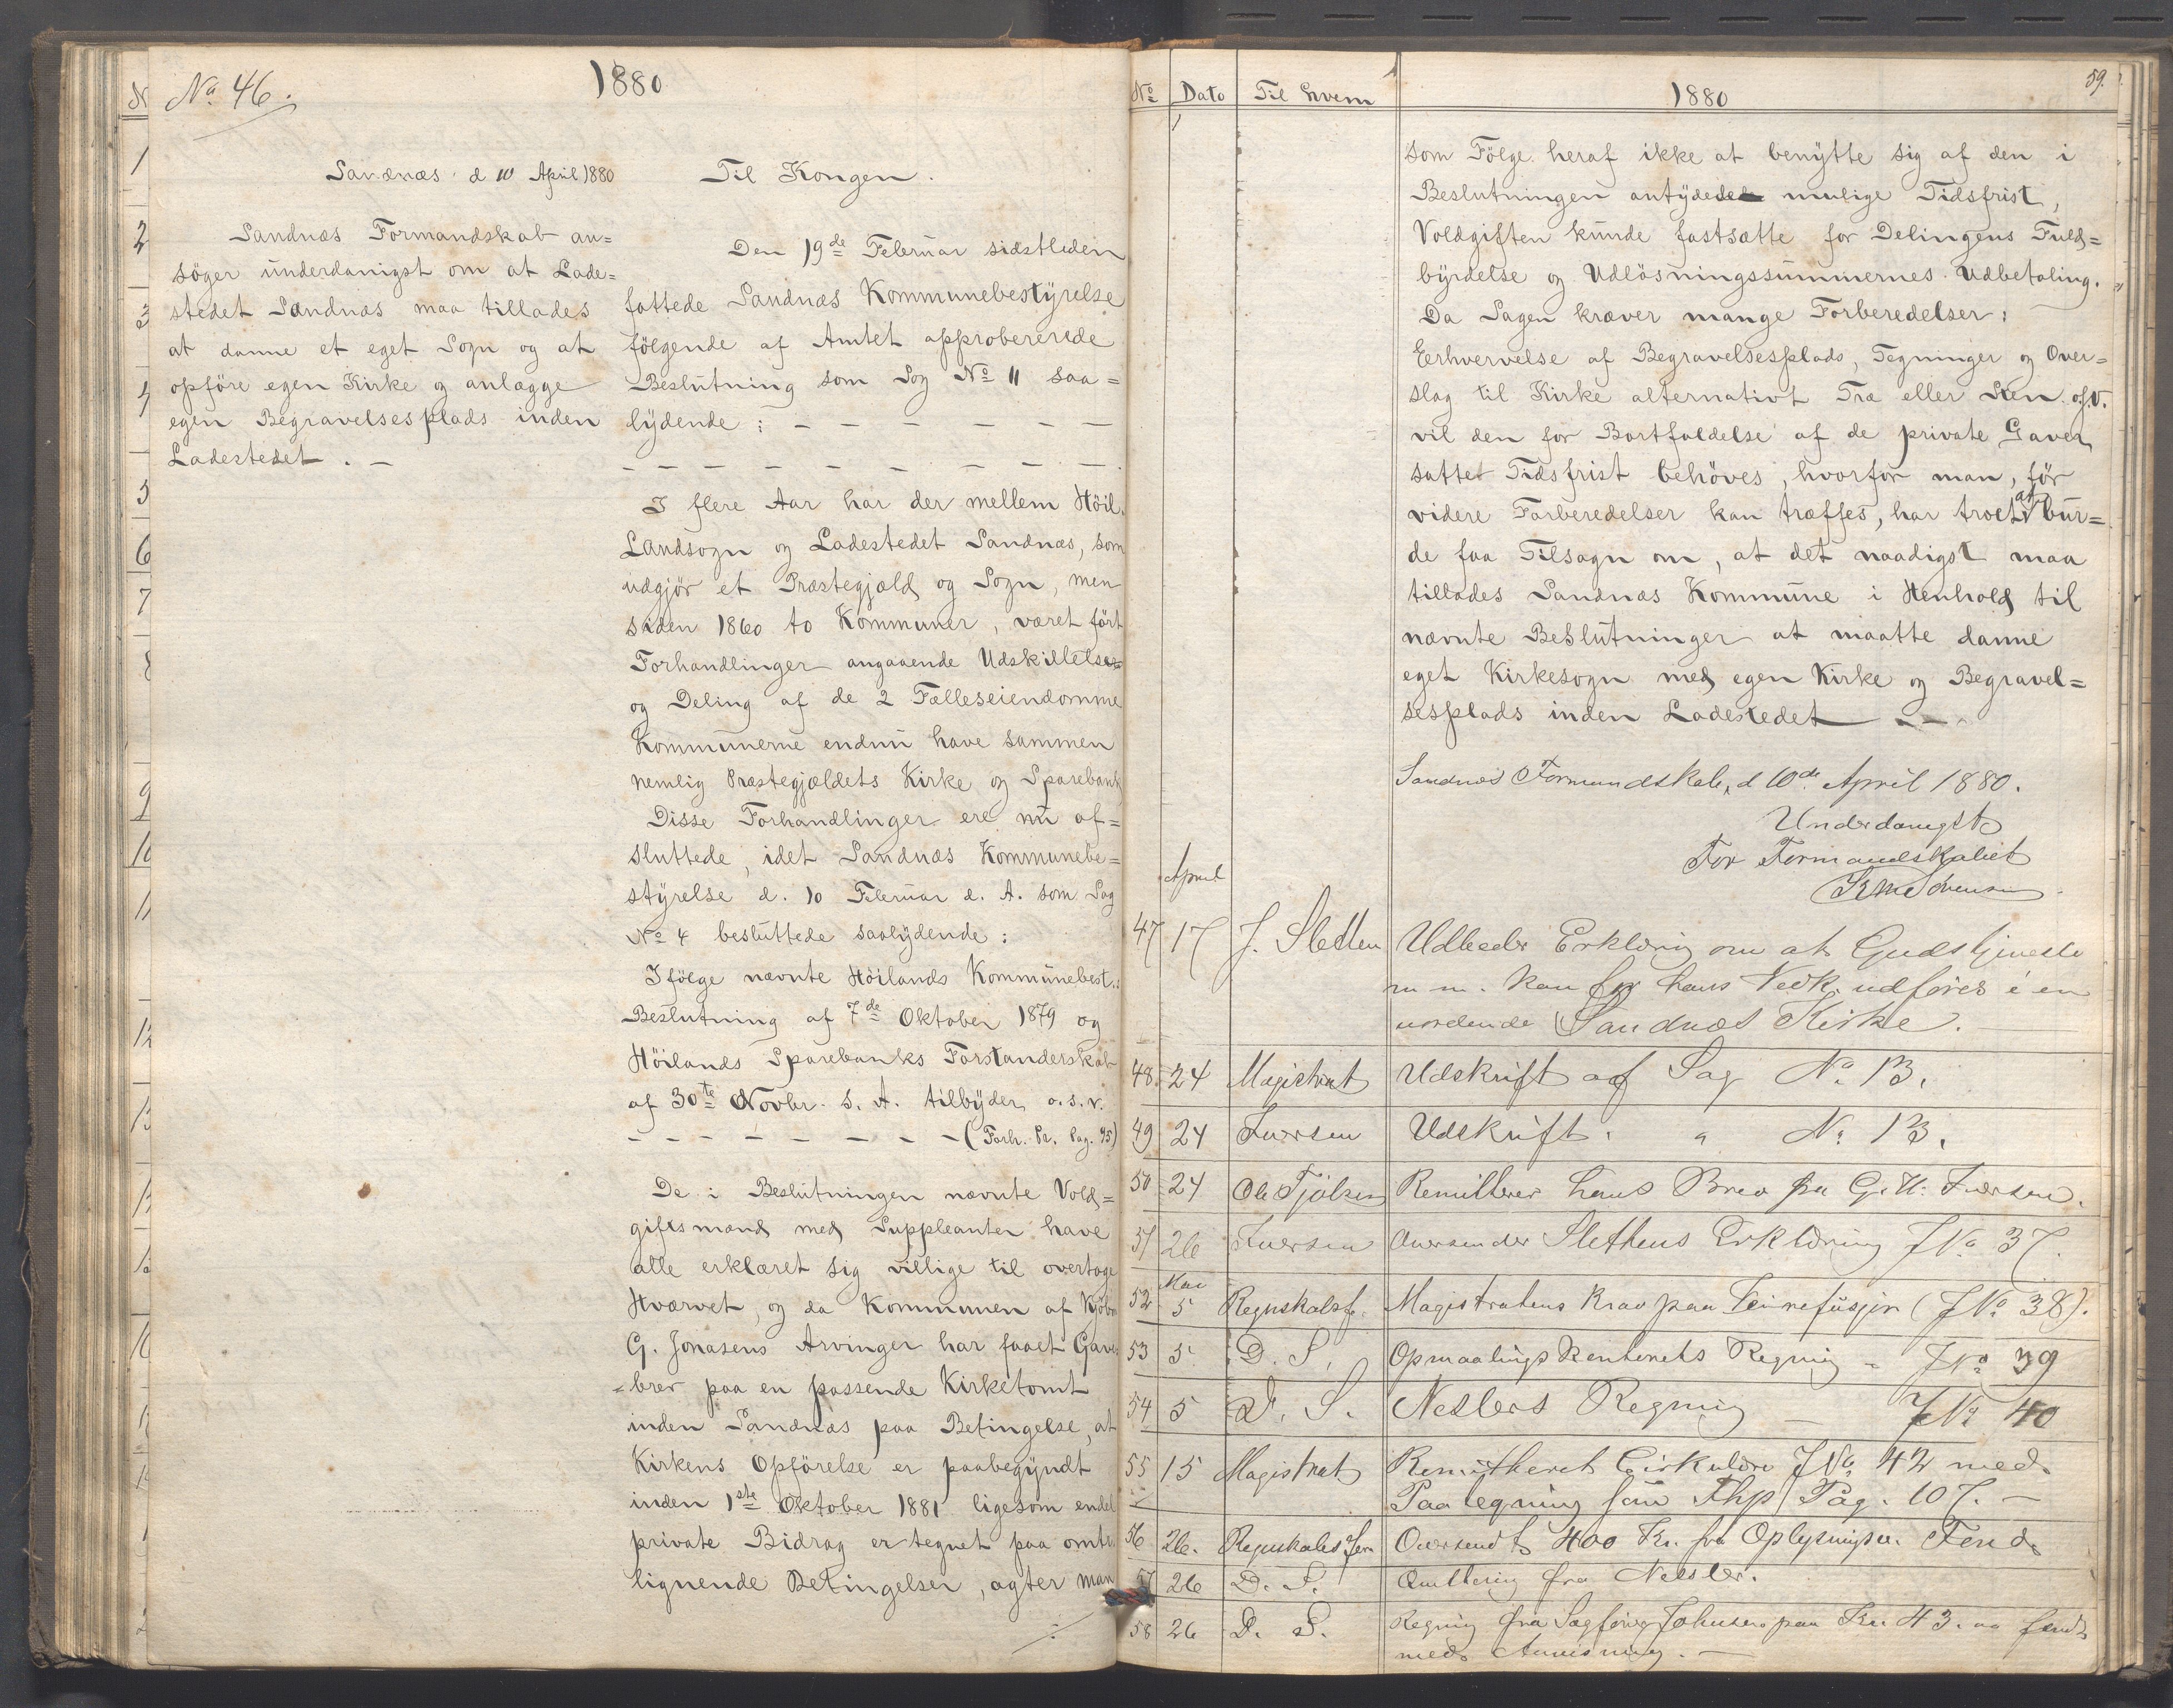 No. 46.
1880
Sandnæs d 10 April 1880
Sandnæs Formandskab an=
söger underdanigst om at Lade=
stedet Sandnæs maa tillades
at danne et eget Sogn og at
opföre egen Kirke og anlægge
egen Begravelsesplads inden
Ladestedet. —
Til Kongen.
Den 19de Februar sidstleden
fattede Sandnæs Kommunebestyrelse
fölgende af Amtet approbererede
Beslutning som Sag No 11 saa=
lydende: — — — — — —
— — — — — — — — —.
I flere Aar har der mellem Höil.
Landsogn og Ladestedet Sandnæs, som
udgjör et Præstegjæld og Sogn, men
siden 1860 to Kommuner, været fört
Forhandlinger angaaende Udskillelse
og Deling af de 2 Fælleseiendomme
Kommunerne endnu have sammen
nemlig Præstegjældets Kirke og Sparebank
Disse Forhandlinger ere nu af=
sluttede, idet Sandnæs Kommunebe=
styrelse d. 10 Februar d. A. som Sag
No 4 besluttede saalydende:
Ifölge nævnte Höilands Kommunebest.:
Beslutning af 7de Oktober 1879 og
Höilands Sparebanks Forstanderskab
af 30te Novbr. s. A. tilbyder o.s.v.
— — — — — — — — (Forh. Pr. Pag. 95)
De i Beslutningen nævnte Vold=
giftsmænd med Suppleanter have
alle erklæret sig villige til overtage
Hvervet, og da Kommunen af Kjöbm
G. Jonasens Arvinger har faaet Gave
=brev paa en passende Kirketomt
inden Sandnæs paa Betingelse, at
Kirkens Opförelse er paabegyndt
inden 1ste Oktober 1881 ligesom endel
private Bidrag er tegnet paa omtr.
lignende Betingelser, agter man
No Dato Til hvem 1880 59.
som Fölge heraf ikke at benytte sig af den i
Beslutningen antydede mulige Tidsfrist,
Voldgiften kunde fastsætte for Delingens Fuld=
byrdelse og Udlösningssummernes Udbetaling.
Da Sagen kræver mange Forberedelser:
Eerhvervelse af Begravelsesplads, Tegninger og Over=
slag til Kirke alternativt Træ eller Sten o.s.v.
vil den for Bortfaldelse af de private Gaver
satte Tidsfrist behöves, hvorfor man, för
videre Forberedelser kan træffes, har troet at bur=
de faa Tilsagn om, at det naadigst maa
tillades Sandnæs Kommune i Henhold til
nævnte Beslutninger at maatte danne
eget Kirkesogn med egen Kirke og Begravel=
sesplads inden Ladestedet — —
Sandnæs Formandskab, d 10de April 1880.
Underdanigst
For Formandskabet
April
47 17 J. Sletten Udbeder Erklæring om at Gudstjeneste
m. m. kan for hans Vedk. udföres i en
vordende Sandnæs Kirke.
48. 24 Magistrat Udskrift af Sag No. 13.
49 24 Iversen Udskrift " " No. 13.
50 24 Ole Tjölsen Remitterer hans Brev fra G. H. Iversen.
51 26 Iversen Oversender Slethens Erklæring J No. 37.
Mai
52 5 Regnskabsf. Magistratens Krav paa (J No. 38).
53 5 D. S. Opmaalings Kontorets Regning - J No. 39
54 5 D. S. Neslers Regning — J No. 40
55 15 Magistrat Remitteret Cirkulære J No. 42 med
Paategning Fhp Pag. 107. —
56 26. Regnskabsför Oversendt 400 Kr. fra Oplysningsv. Fond
57 26 D. S. Qvittering fra Nesler.
58 26 D. S. Regning fra Sagförer Johnsen paa Kr. 43.
med Anvisning. —